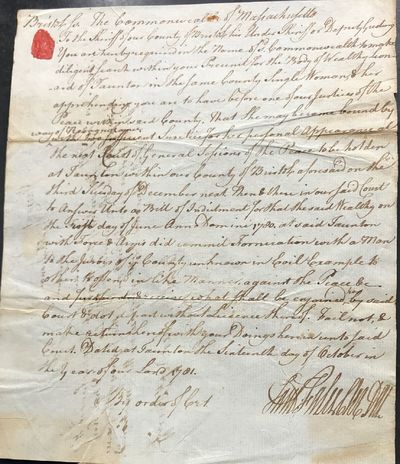 Bristol ss. The Commonwealth of Massachusetts
To the Sheriff of our County of Bristol his Under Sheriff or Deputy Greeting
You are hereby required in the Name of ye Commonwealth to make
diligent search within your Precinct for the Body of Wealthy
of Taunton in the same County Single Woman & her
apprehending you are to have before one of our Justices of the
Peace within said County, That she may become bound by
way of Recognizance
with sufficient Sureties for her personal Appearance at
the next Court of General Sessions of the Peace to be holden
at Taunton within our County of Bristol aforesaid on the
third Tuesday of December next Then & there in our said Court
to Answer unto a Bill of Indictment for that the said Wealthy on
the First day of June Anno Domini 1780. at said Taunton
with Force & Arms did commit Fornication with a Man
to the Jurors of ye County unknown in Evil Example to
others to offend in like Manner, against the Peace &c
and receive what shall be enjoined by said
Court & not depart without Licence therefor. Fail not, &
make return hereof with your Doings herein unto said
Court. Dated at Taunton the Sixteenth day of October in
the Year of our Lord 1781.
By order of Crt